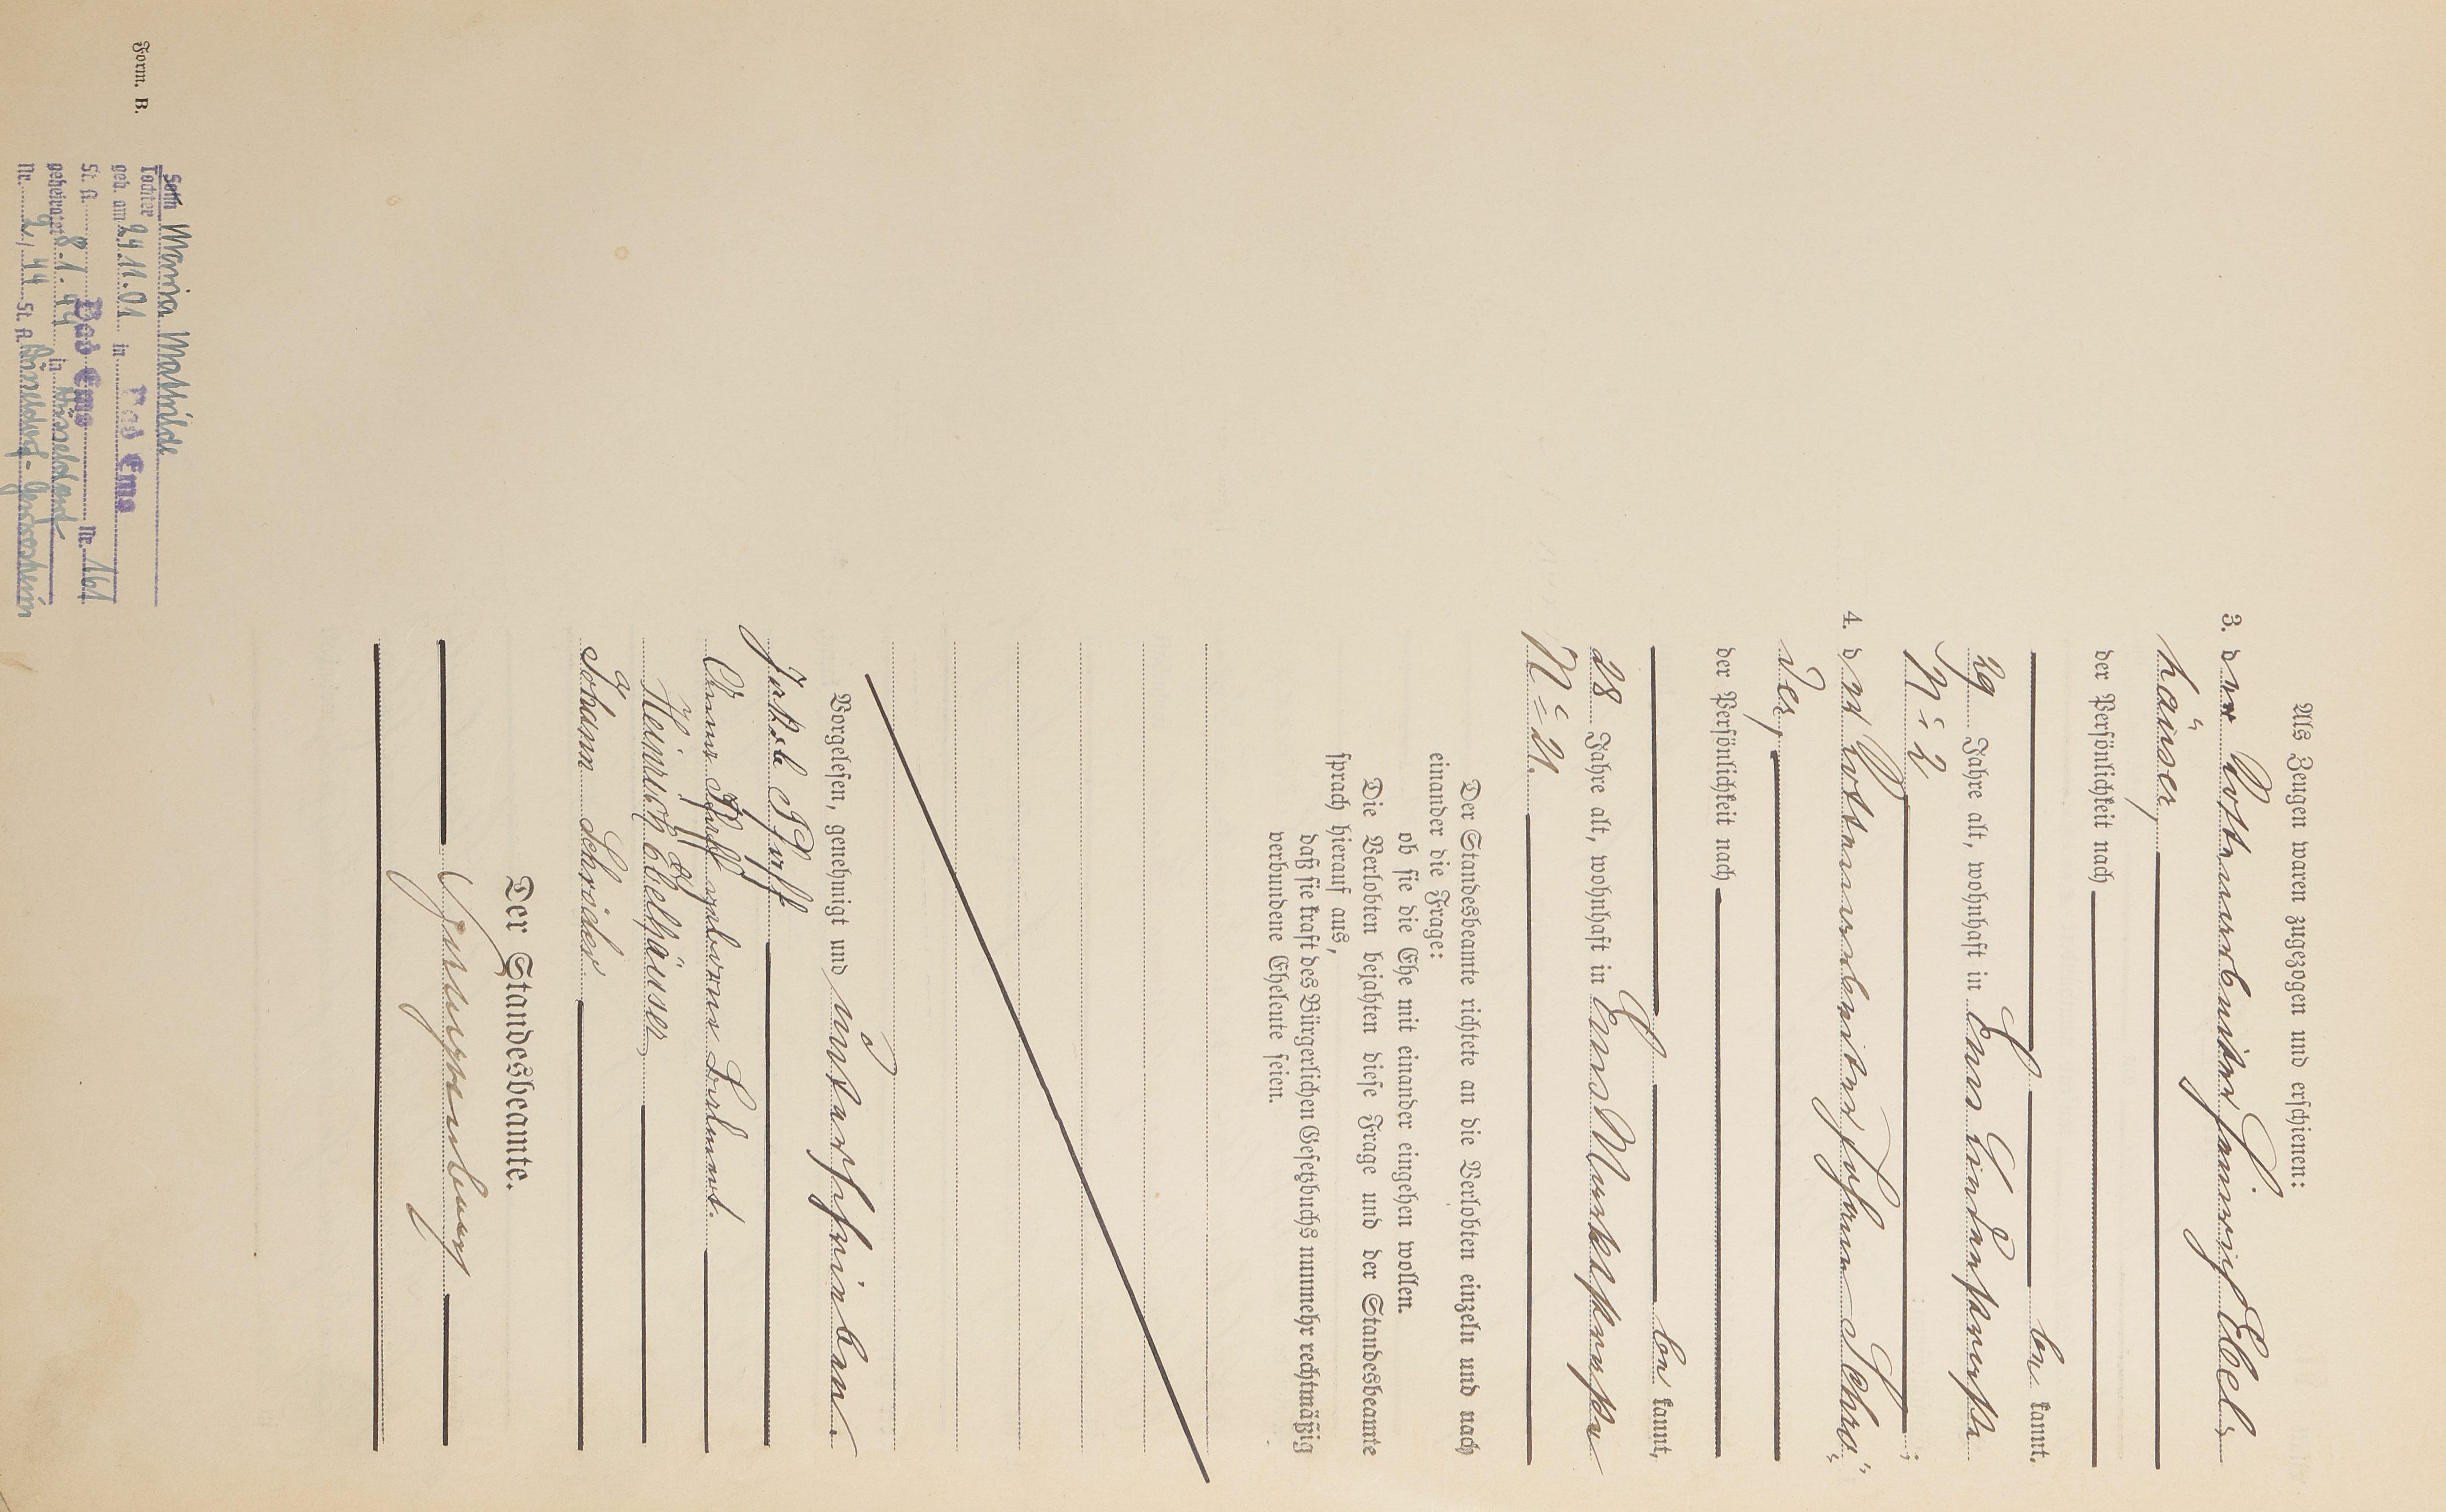 Als Zeugen waren zugezogen und erschienen:
3. der Postunterbeamte Heinrich Ebel-
häuser,
der Persönlichkeit nach
be kannt,
29 Jahre alt, wohnhaft in Ems Lindenstraße
N: 2 ;
4. der Johann Schrö-
der,
der Persönlichkeit nach
be kannt,
28 Jahre alt, wohnhaft in Ems Marktstraße
N:
Der Standesbeamte richtete an die Verlobten einzeln und nach
einander die Frage:
ob sie die Ehe mit einander eingehen wollen.
Die Verlobten bejahten diese Frage und der Standesbeamte
sprach hierauf aus,
daß sie kraft des Bürgerlichen Gesetzbuchs nunmehr rechtmäßig
verbundene Eheleute seien.
Vorgelesen, genehmigt und unterschrieben.
Jakob Pfaff
Anna Pfaff geborene
Heinrich Ebelhäuser
Johann Schröder
Der Standesbeamte.
Form. B.
Sohn Maria Mathilde
Tochter
geb. am 24.11.01 in Bad Ems
St. A. Bad Ems Nr. 161
geheiratet 8.1.44 in Düsseldorf
Nr. 2/44 St. A. Düsseldorf-Gerresheim